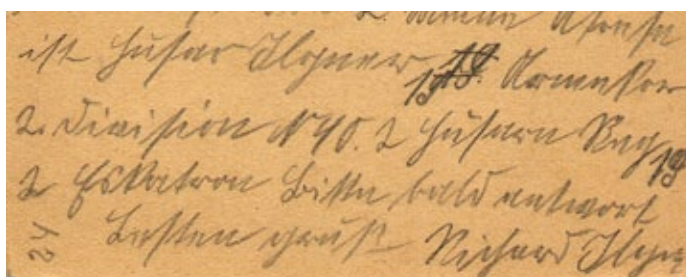 2. Meine Adresse
ist Husar Ilgner 19. Armeekor
2. Division N 40. 2 Husarn Reg 19
2 Eskatron Bitte bald antwort
Besten gruß Richard Ilgn
24